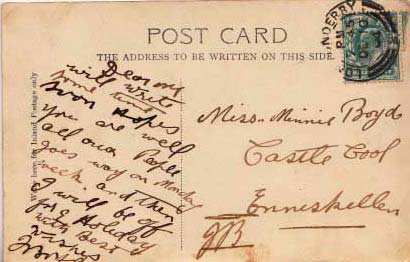 POST CARD
THE ADDRESS TO BE WRITTEN ON THIS SIDE.
Write here for Inland Postage only
Dear
will write
some time
soon hopes
you are well
all our People
goes way on Monday
week. and then
I will be off
for a Holiday
with best
wishes
Miss Minnie Boyd
Castle Cool
Enniskellen
JB
NDERRY
PM